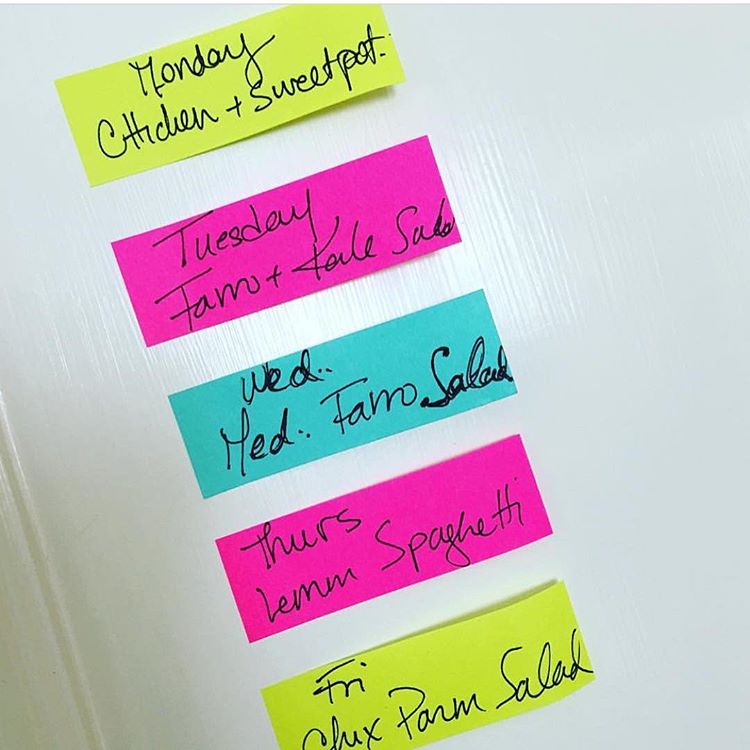 Monday
Chicken + Sweetpot.
Tuesday
Farro + Kale Sala
Wed..
Med.. Farro Salad
Thurs
Lemon Spaghetti
Fri
Chix Parm Salad